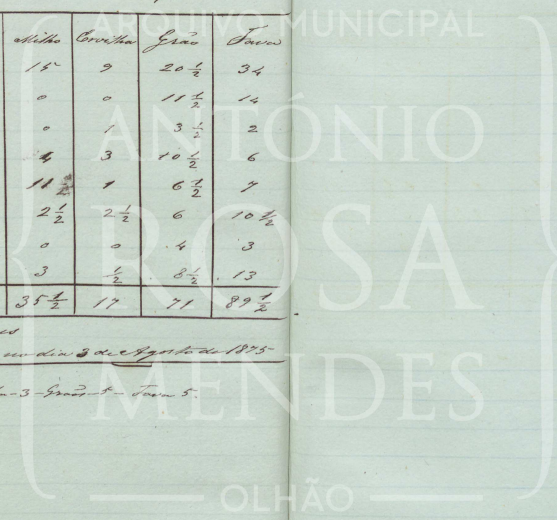 ARQUIVO MUNICIPAL
ANTÓNIO
ROSA
MENDES
OLHÃO
Milho Ervilha Grão Fava
15 9 20 1/2 34
0 0 11 1/2 14
0 1 3 1/2 2
4 3 10 1/2 6
11 1 6 1/2 7
2 1/2 2 1/2 6 10 1/2
0 0 4 3
3 1/2 8 1/2 13
35 1/2 17 71 89 1/2
no dia 3 de Agosto de 1875
3 - Grão - 5 - Fava 5.